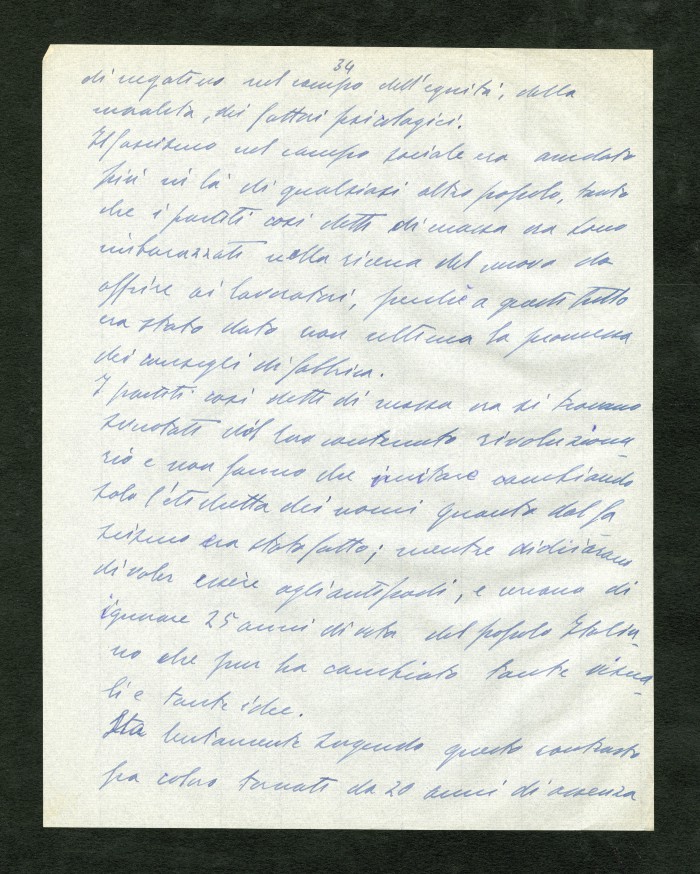 34
di negativo nel campo dell'equità, della
moralità, dei fattori psicologici.
Il fascismo nel campo sociale era andato
più in là di qualsiasi altro popolo, tanto
che i partiti così detti di massa ora sono
imbarazzati nella ricerca del nuovo da
offrire ai lavoratori, perchè a questi tutto
era stato dato non ultima la promessa
dei consigli di fabbrica.
I partiti così detti di massa ora si trovano
svuotati del loro contenuto rivoluziona
rio e non fanno che imitare cambiando
solo l'etichetta dei nomi quanto dal fa
scismo era stato fatto; mentre dichiarano
di voler essere agli antipodi, e cercano di
ignorare 25 anni di vita del popolo Italia-
no che pur ha cambiato tante visua-
li e tante idee.
Sta lentamente sorgendo questo contrasto
fra coloro tornati da 20 anni di assenza